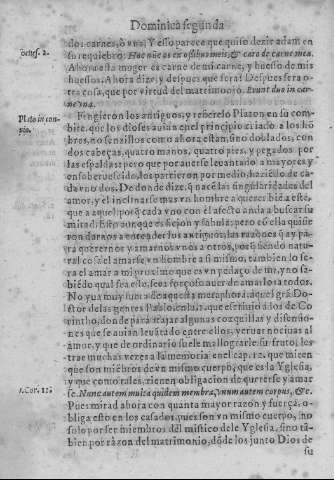 Dominica segunda
dos carnes, o vna. Y esso parece que quiso dezir adam en
Genes. 2.
su requiebro: Hoc nũc os ex ossibus meis, & caro de carne mea.
Ahora esta moger es carne de mi carne, y huesso de mis
huessos. Ahora dize, y despues que sera? Despues sera o-
tra cosa, que por virtud del matrimonio. Erunt duo in car-
ne vna.
Plato in con-
uiuio.
Fingieron los antiguos, y refierelo Platon en su com-
bite, que los dioses auian en el principio criado a los hõ
bres, no senzillos como ahora estan, sino doblados, con
dos cabeças, quatro manos, quatro pies, y pegados por
las espaldas: pero que por auerse leuantado a mayores y
ensoberuecido, los partieron por medio, haziẽdo de ca-
da vno dos. De donde dize, q̃ nacẽ las singularidades del
amor, y el inclinarse mas vn hombre a querer biẽ a este,
que a aquel: porq̃ cada vno con el afecto anda a buscar su
mitad. Esto aunque es ficion y fabula: pero cõ ella quisie
ron darnos a entender los antiguos las razones q̃ ay pa-
ra querernos y amarnos vnos a otros, pues siendo natu-
ral cosa el amarse vn hombre a si mismo, tambien lo se-
ra el amar a mi proximo que es vn pedaço de mi, y no sa-
biẽdo qual sea este, sera forçoso auer de amarlos a todos.
No yua muy lexos de aquesta metaphora, aquel grã Do-
ctor de las gentes Pablo, en la 1. que escriuio a los de Co
rintho, donde para atajar algunas cozquillas y disensio-
nes que se auian leuãtado entre ellos, y criar nociuas al
amor, y que de ordinario suele mallograrle su fruto, les
trae muchas vezes a la memoria en el cap. 12. que miren
que son miẽbros de vn mismo cuerpo, que es la Yglesia,
y que como tales, tienen obligacion de quererse y amar
1. Cor. 12.
se. Nunc autem multa quidem membra, vnum autem corpus, &c.
Pues mirad ahora con quanta mayor razon y fuerça, o-
bliga esto en los casados, que son vn mismo cuerpo, no
solo por ser miembros del mistico de la Yglesia, sino tã-
bien por razon del matrimonio, dõde los junto Dios de
su